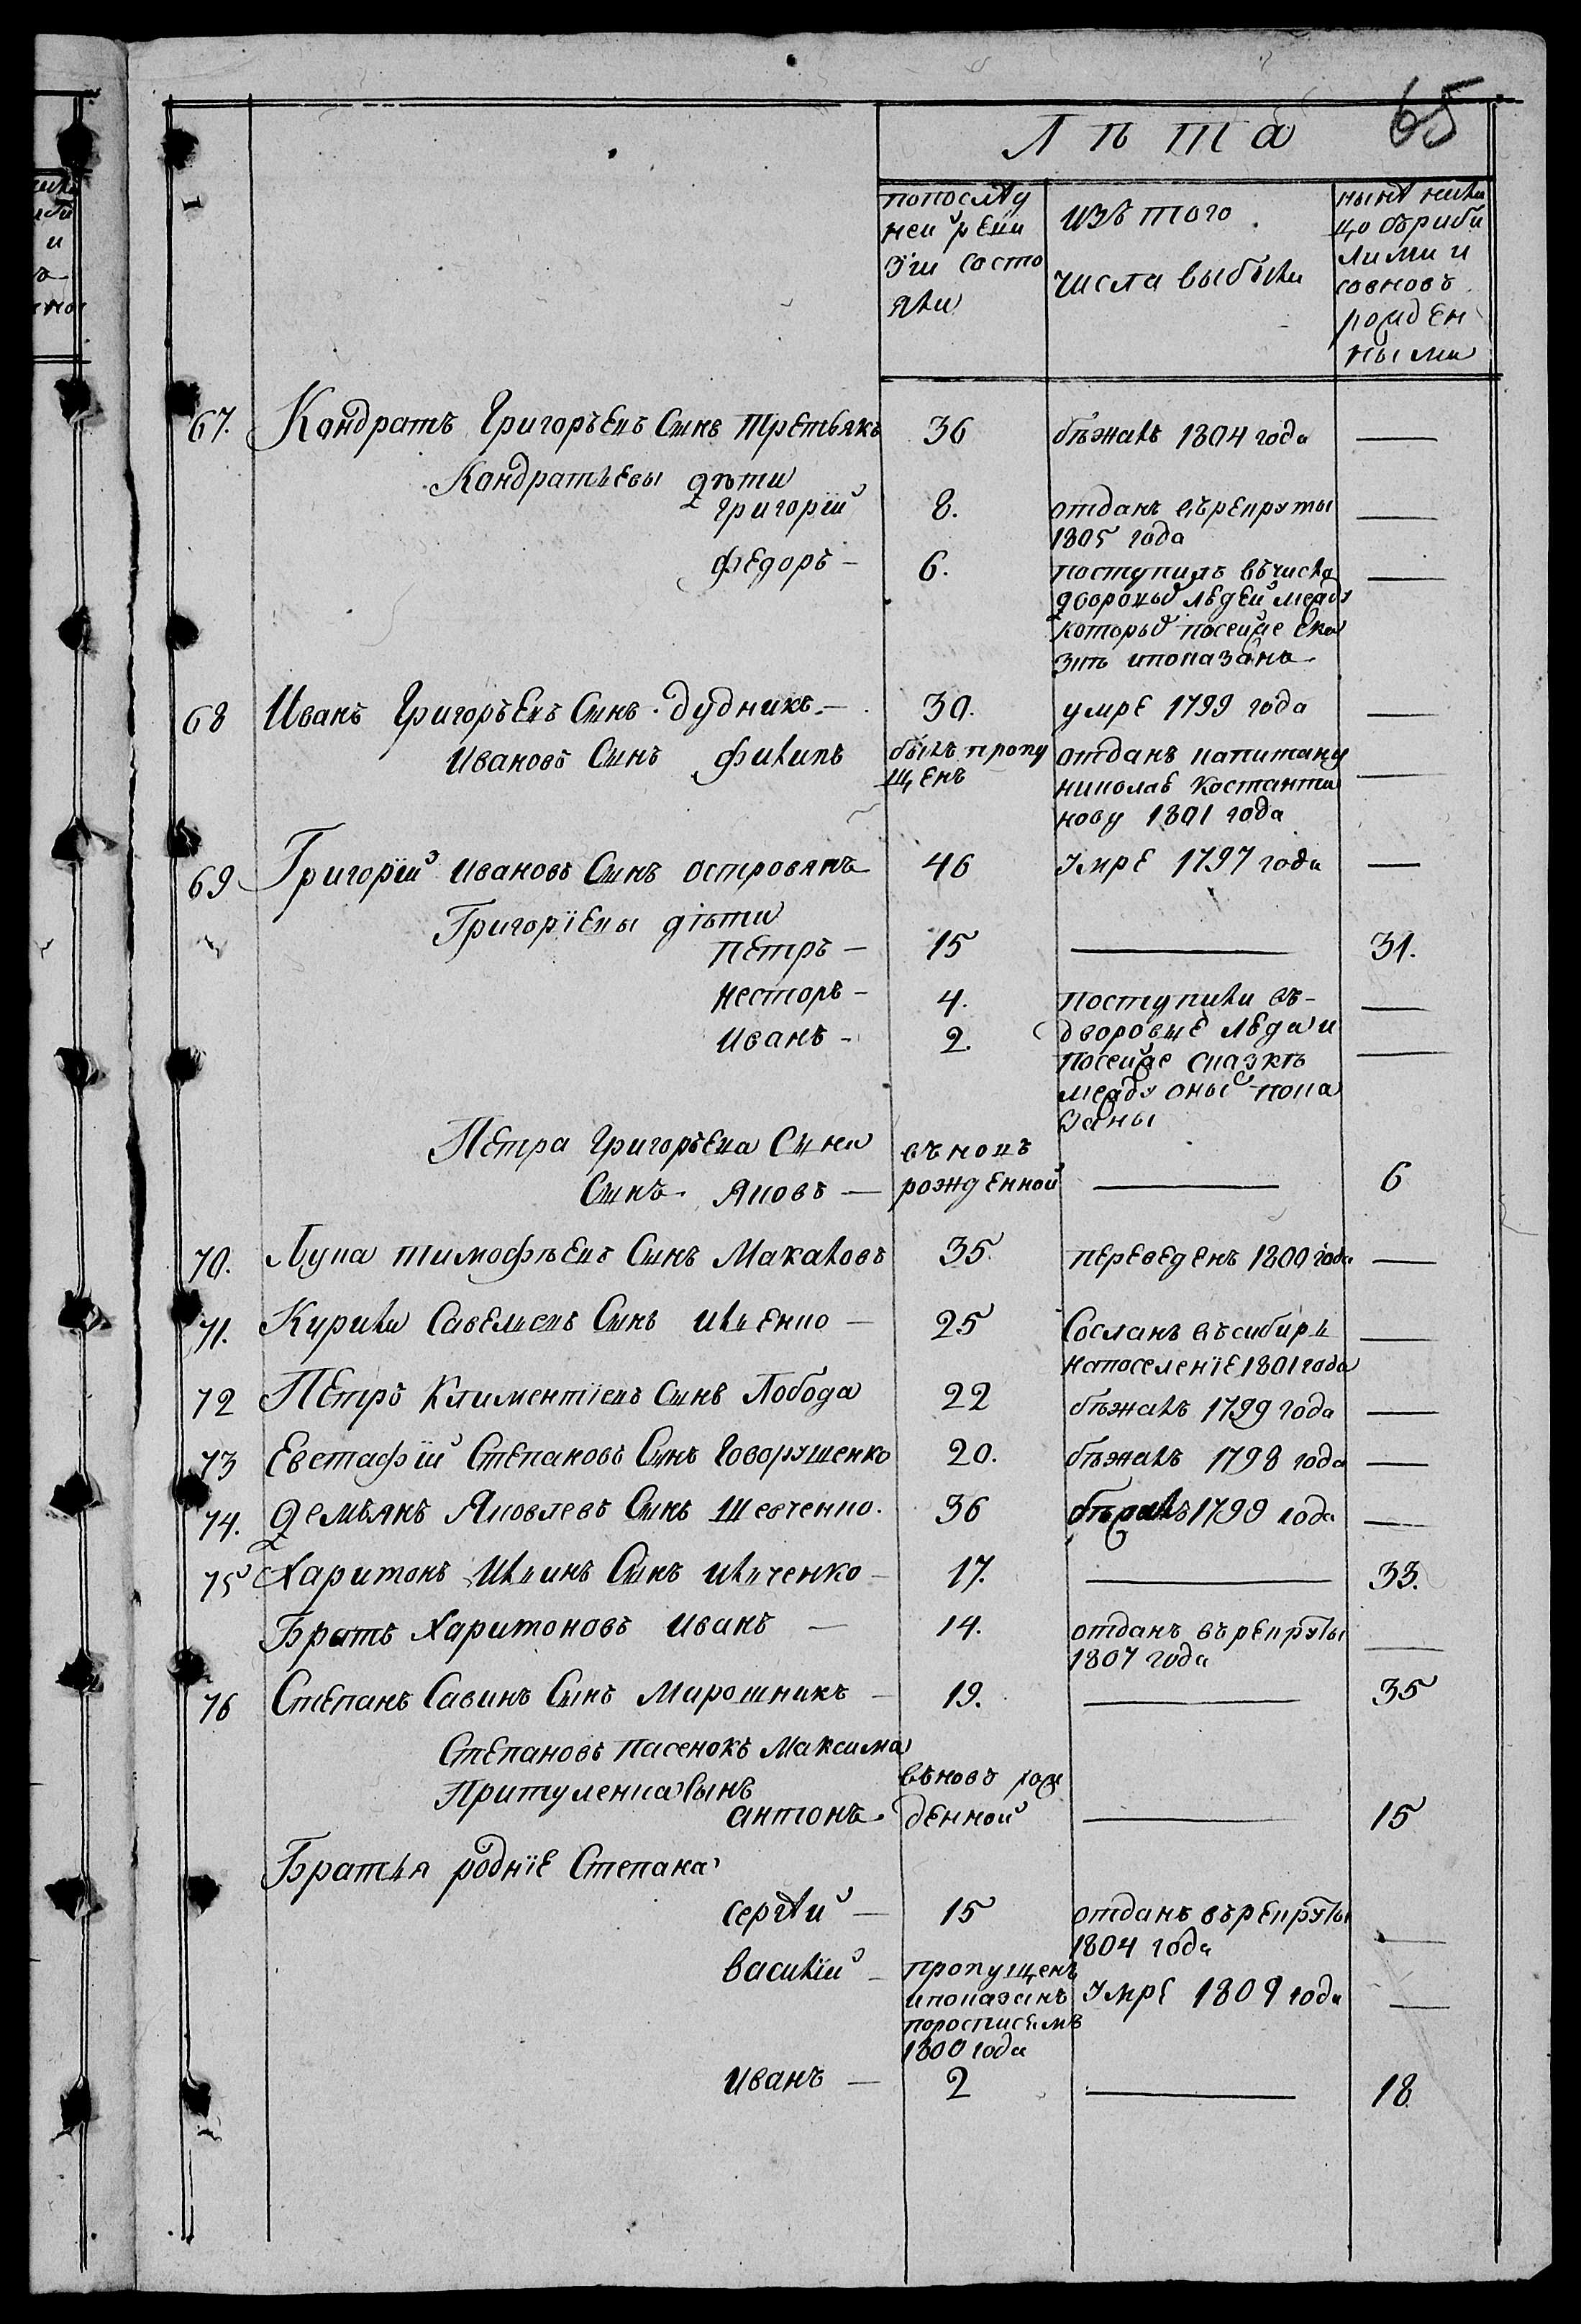 65
Лѣта
попослѣд
ней реви
зіи состо
яли
изъ того
числа выбыли
нынѣ на ли
цо съ прибы
лыми и
совновь
рожден
ными
67. Кондратъ Григорьевъ Сынъ Третьякъ 36 бѣжалъ 1804 года —
Кондратьевы дѣти
Григорій 8. отданъ въ рекруты —
1805 года
Федоръ — 6. поступилъ въ число —
дворовых людей между
которых посей же ска
зкѣ и показанъ
68 Иванъ Григорьевъ Сынъ Дудникъ — 30. умре 1799 года —
Ивановъ Сынъ Филипъ былъ пропу отданъ капитану —
щенъ николаю Костанти
нову 1801 года
69 Григорій Ивановъ Сынъ Островянъ 46 умре 1797 года —
Григоріевы дѣти
Петръ — 15 — 31.
Несторъ — 4. поступили въ —
Иванъ — 2. дворовые люди и —
посей же сказкѣ
между оных пока
заны
Петра Григорьева Сына въновъ
Сынъ Яковъ — рожденной — 6
70. Лука Тимофѣевъ Сынъ Макаловъ 35. переведенъ 1800 года —
71. Кирила Савельевъ Сынъ Ильенко — 25 Сосланъ въ сибирь —
на поселеніе 1801 года
72 Петръ Климентіевъ Сынъ Лобода 22 бѣжалъ 1799 года —
73 Евстафій Степановъ Сынъ Говорущенко 20. бѣжалъ 1798 года —
74. Демьянъ Яковлевъ Сынъ Шевченко. 36 бѣжалъ 1799 года —
75 Харитонъ Ильинъ Сынъ Ильченко — 17. — 33.
Братъ Харитоновъ Иванъ — 14. отданъ въ рекруты —
1807 года
76 Степанъ Савинъ Сынъ Мирошникъ — 19. — 35
Степановъ пасенокъ Максима
Притуленка Сынъ въновъ рож
антонъ. денной — 15
Братья родніе Степана
Сергѣй — 15 отданъ въ рекруты —
1804 года
Василій — пропущенъ
и показанъ умре 1809 года —
по росписямъ
1800 года
Иванъ — 2 — 18